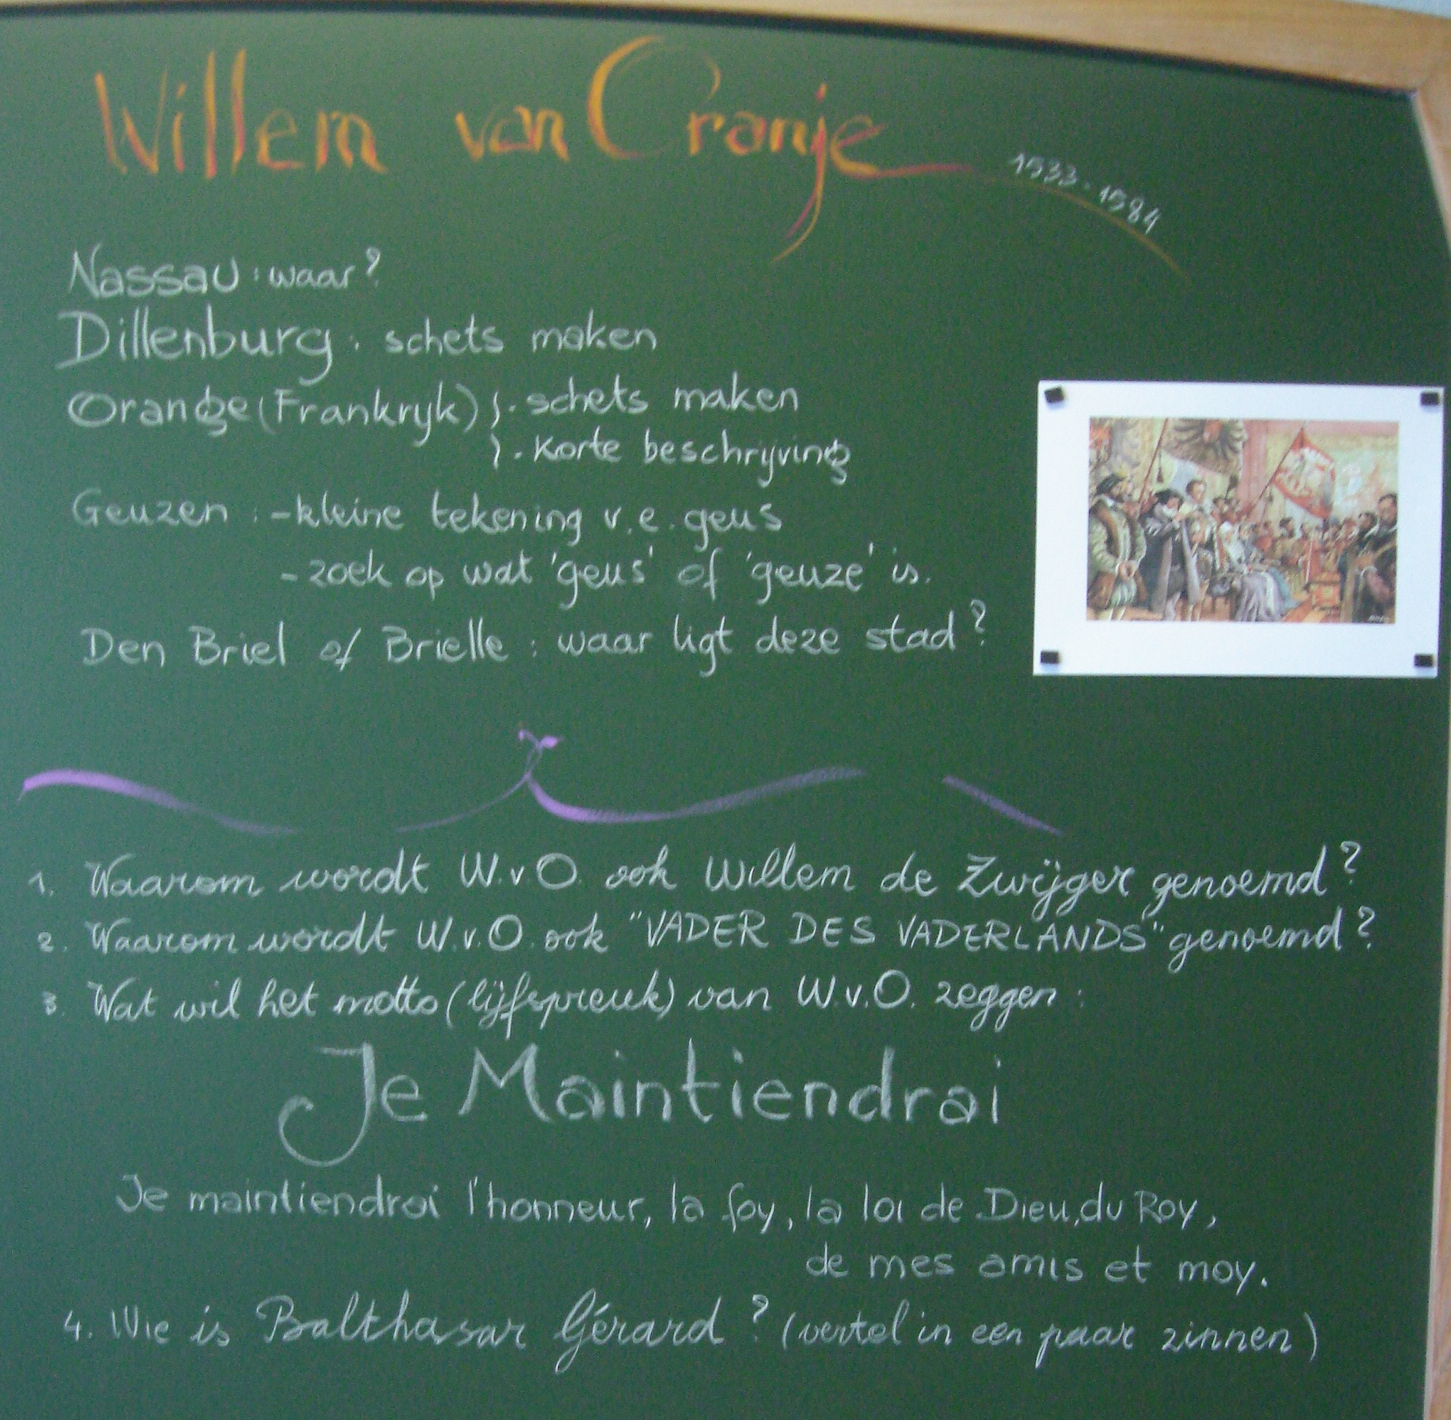 Willem van Oranje
1533 - 1584
Nassau : waar?
Dillenburg : schets maken
Orange (Frankrijk) } . schets maken
} . Korte beschrijving
Geuzen : - kleine tekening v.e. geus
- zoek op wat 'geus' of 'geuze' is.
Den Briel of Brielle : waar ligt deze stad?
1. Waarom wordt W.v.O. ook Willem de Zwijger genoemd?
2. Waarom wordt W.v.O. ook "VADER DES VADERLANDS" genoemd?
3. Wat wil het motto (lijfspreuk) van W.v.O. zeggen :
Je Maintiendrai
Je maintiendrai l'honneur, la foy, la loi de Dieu, du Roy,
de mes amis et moy.
4. Wie is Balthasar Gérard? (vertel in een paar zinnen)